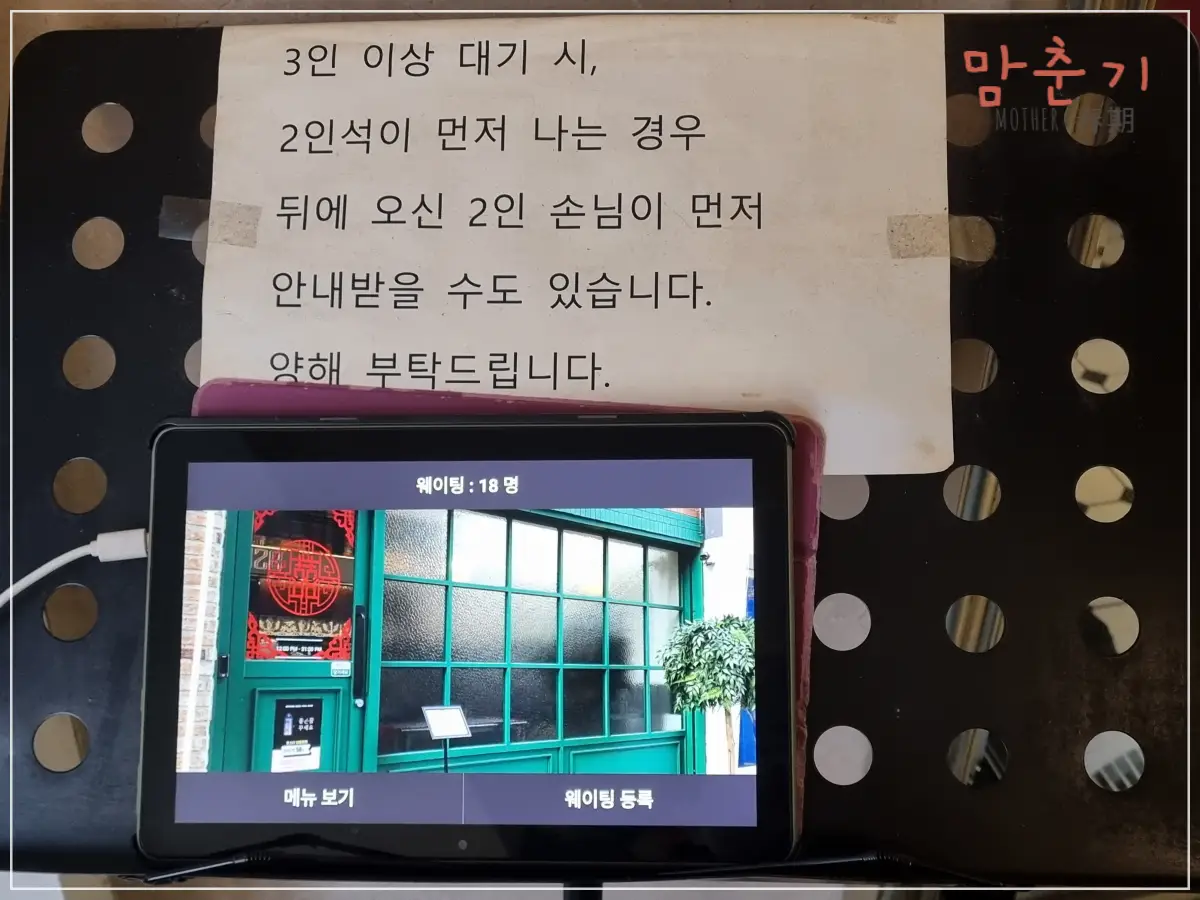 3인 이상 대기 시,
2인석이 먼저 나는 경우
뒤에 오신 2인 손님이 먼저
안내받을 수도 있습니다.
양해 부탁드립니다.
맘춘기
MOTHER
期
웨이팅 : 18 명
메뉴 보기
웨이팅 등록